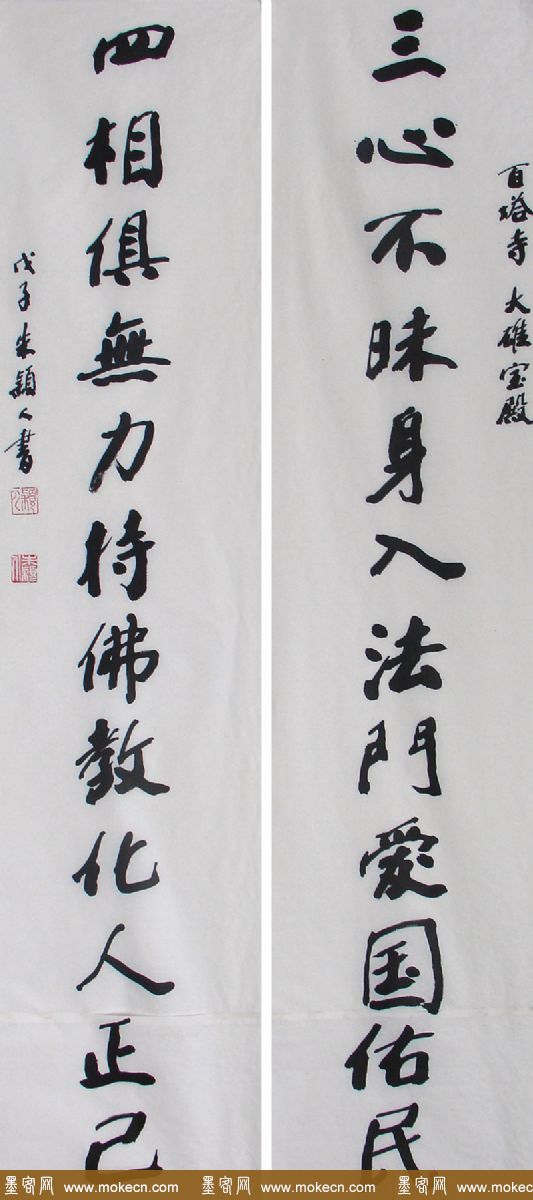 百塔寺 大雄宝殿
三心不昧身入法門爱国佑民
四相俱無力持佛教化人正己
戊子朱颖人書
墨客网 www.mokecn.com 墨客网 www.mokecn.com 墨客网 www.mokecn.com